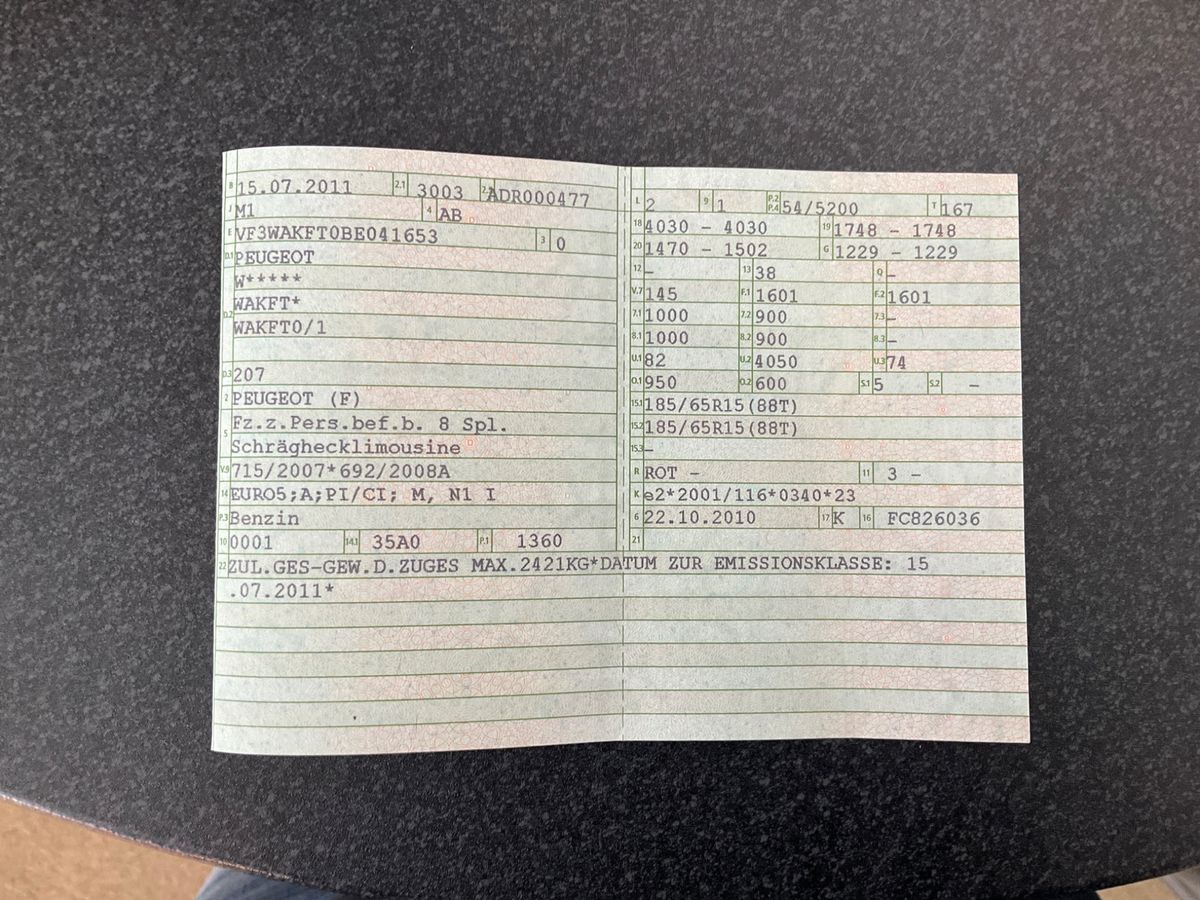 B 15.07.2011 2.1 3003 2.2 ADR000477
J M1 4 AB
E VF3WAKFT0BE041653 3 0
D.1 PEUGEOT
W*****
D.2 WAKFT*
WAKFT0/1
D.3 207
2 PEUGEOT (F)
5 Fz.z.Pers.bef.b. 8 Spl.
Schräghecklimousine
V.9 715/2007*692/2008A
14 EURO5;A;PI/CI; M, N1 I
P.3 Benzin
10 0001 14.1 35A0 P.1 1360
L 2 9 1 P.2 P.4 54/5200 T 167
18 4030 - 4030 19 1748 - 1748
20 1470 - 1502 G 1229 - 1229
12 - 13 38 Q -
V.7 145 F.1 1601 F.2 1601
7.1 1000 7.2 900 7.3 -
8.1 1000 8.2 900 8.3 -
U.1 82 U.2 4050 U.3 74
O.1 950 O.2 600 S.1 5 S.2 -
15.1 185/65R15(88T)
15.2 185/65R15(88T)
15.3 -
R ROT - 11 3 -
K e2*2001/116*0340*23
6 22.10.2010 17 K 16 FC826036
21
22 ZUL.GES-GEW.D.ZUGES MAX.2421KG*DATUM ZUR EMISSIONSKLASSE: 15
.07.2011*